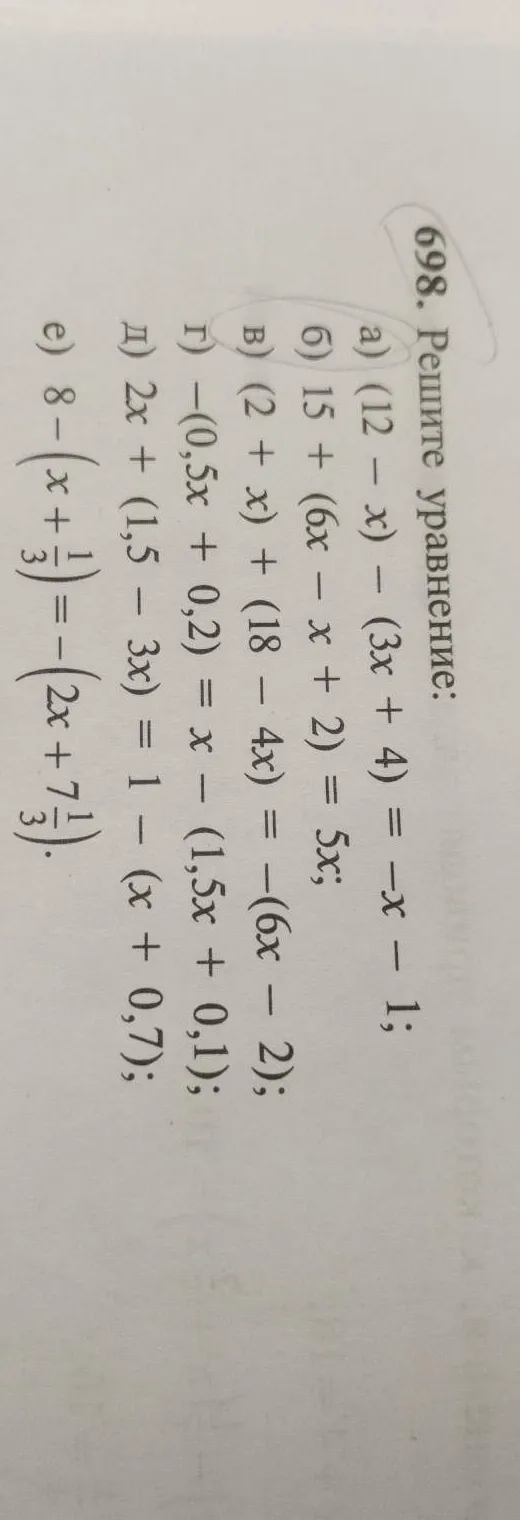 698. Решите уравнение:
а) (12 − x) − (3x + 4) = −x − 1;
б) 15 + (6x − x + 2) = 5x;
в) (2 + x) + (18 − 4x) = −(6x − 2);
г) −(0,5x + 0,2) = x − (1,5x + 0,1);
д) 2x + (1,5 − 3x) = 1 − (x + 0,7);
е) 8 − (x + 1/3) = −(2x + 7 1/3).